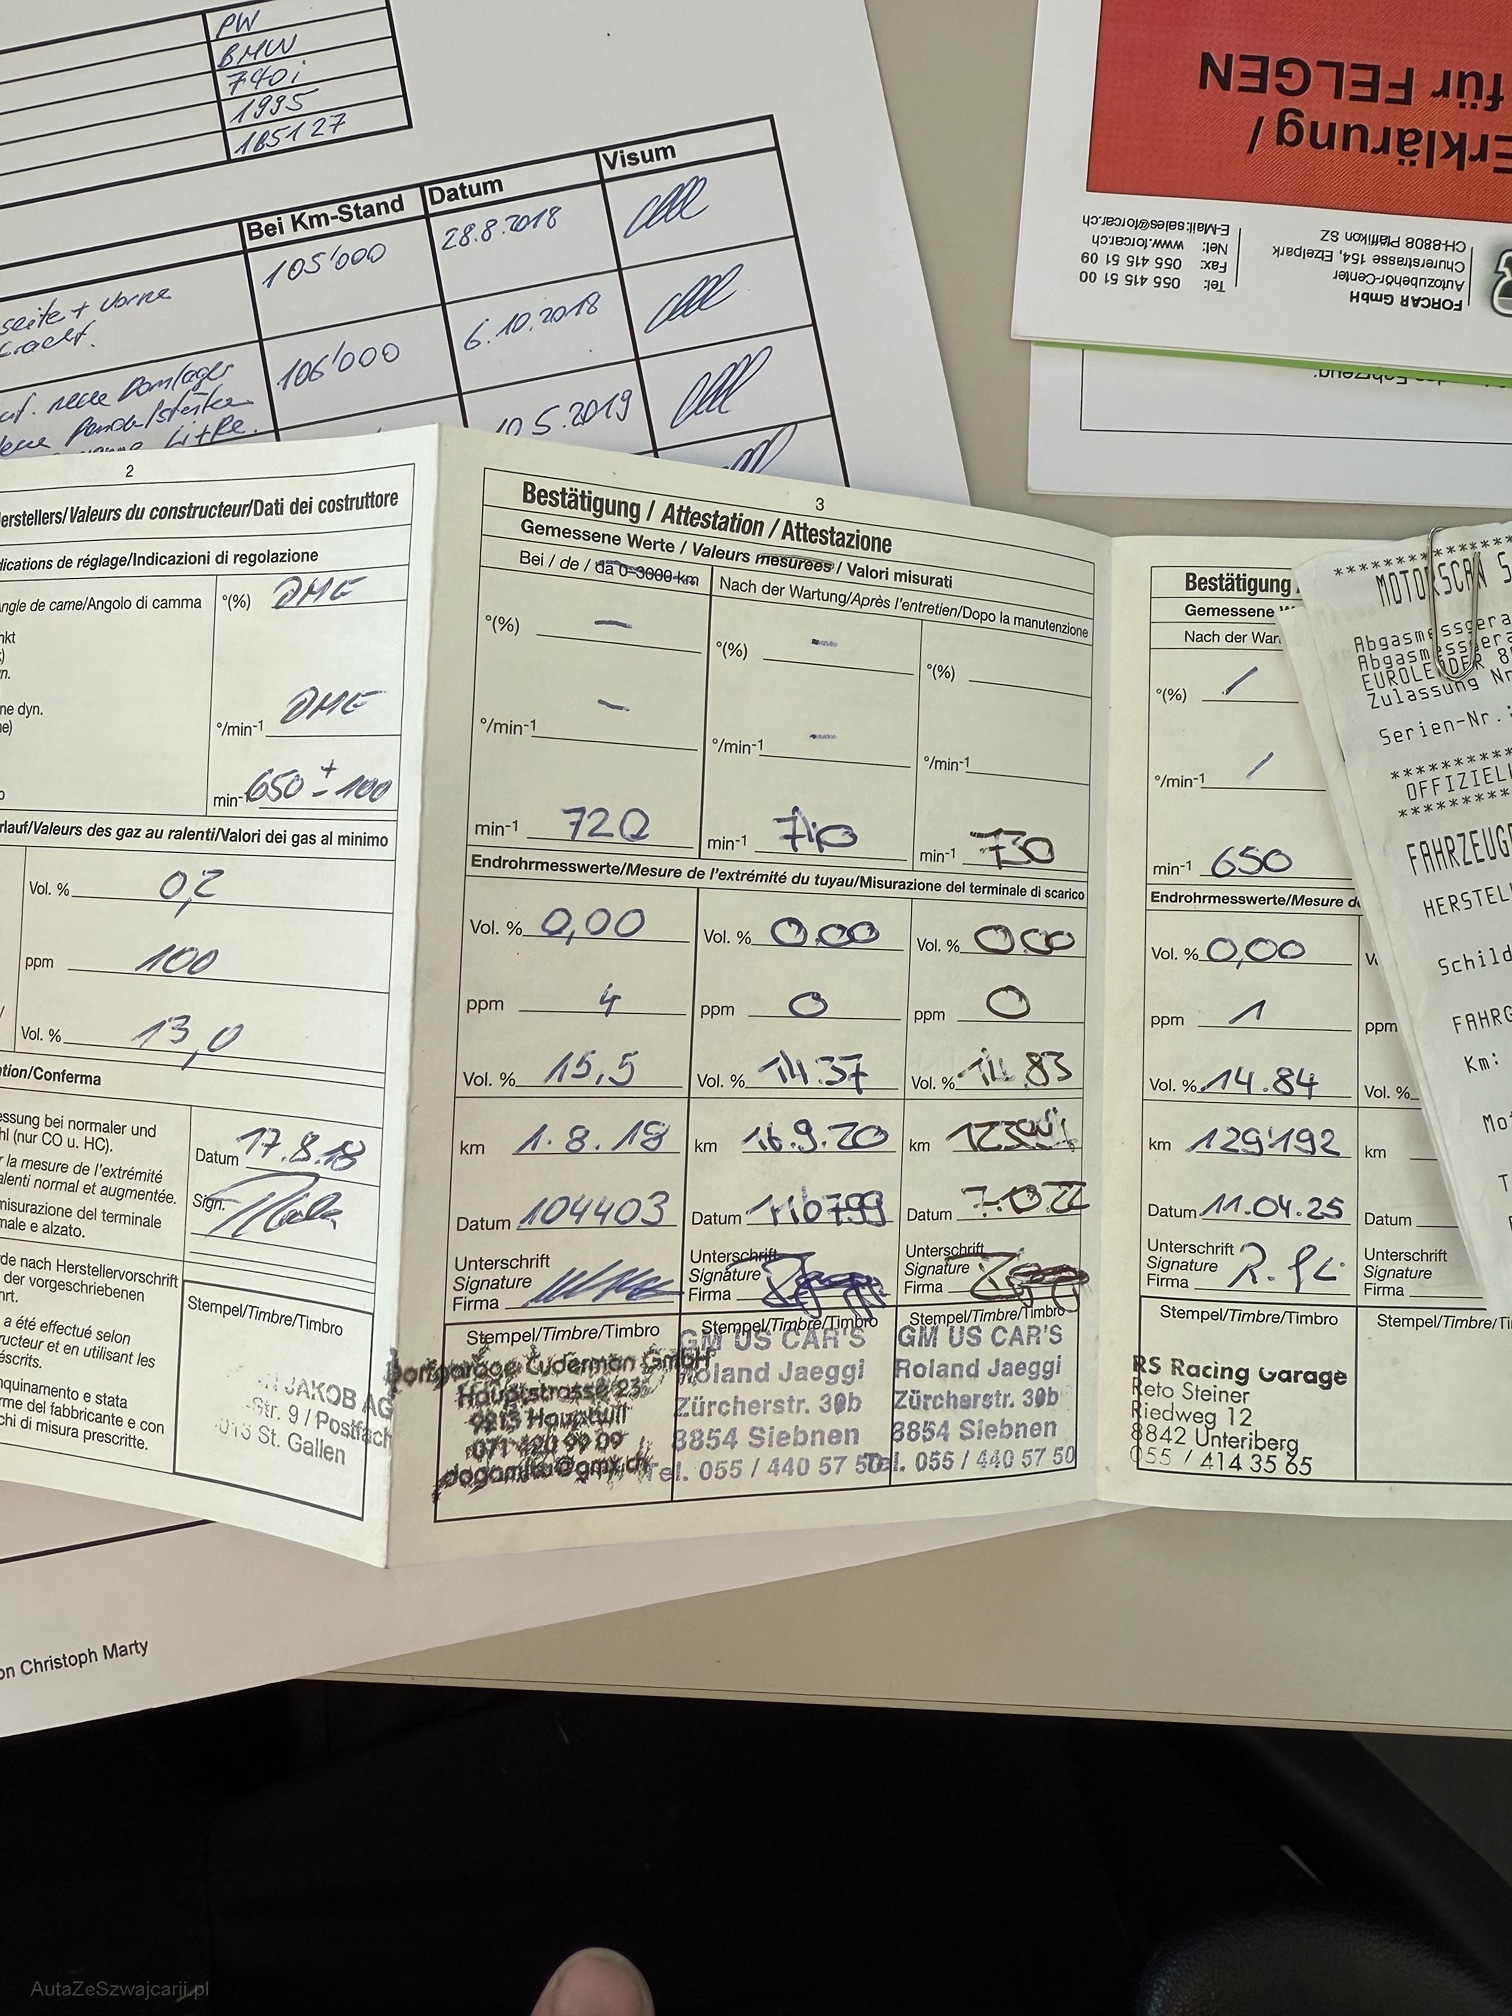 PW
BMW
740i
1995
185127
Bei Km-Stand Datum Visum
105'000 28.8.2018
seite + vorne
106'000 6.10.2018
neue Domlager
10.5.2019
Erklärung /
für FELGEN
FORCAR GmbH
Autozubehör-Center
Churerstrasse 154, Etzelpark
CH-8808 Pfäffikon SZ
Tel: 055 415 51 00
Fax: 055 415 51 09
Net: www.forcar.ch
E-Mail: sales@forcar.ch
2
erstellers/Valeurs du constructeur/Dati dei costruttore
dications de réglage/Indicazioni di regolazione
ngle de came/Angolo di camma °(%) DME
nkt
ne dyn.
°/min-1 DME
min-1 650 ± 100
rlauf/Valeurs des gaz au ralenti/Valori dei gas al minimo
Vol. % 0,2
ppm 100
Vol. % 13,0
tion/Conferma
essung bei normaler und
hl (nur CO u. HC).
r la mesure de l'extrémité
alenti normal et augmentée.
misurazione del terminale
male e alzato.
Datum 17.8.18
Sign.
de nach Herstellervorschrift
der vorgeschriebenen
hrt.
a été effectué selon
ructeur et en utilisant les
escrits.
nquinamento e stata
rme del fabbricante e con
chi di misura prescritte.
Stempel/Timbre/Timbro
JAKOB AG
Str. 9 / Postfach
St. Gallen
3
Bestätigung / Attestation / Attestazione
Gemessene Werte / Valeurs mesurées / Valori misurati
Bei / de / da 0-3000 km
Nach der Wartung/Après l'entretien/Dopo la manutenzione
°(%) – °(%) – °(%)
°/min-1 – °/min-1 – °/min-1
min-1 720 min-1 710 min-1 730
Endrohrmesswerte/Mesure de l'extrémité du tuyau/Misurazione del terminale di scarico
Vol. % 0,00 Vol. % 0.00 Vol. % 0.00
ppm 4 ppm 0 ppm 0
Vol. % 15,5 Vol. % 14.37 Vol. % 14.83
km 1.8.18 km 16.9.20 km
Datum 104403 Datum 116799 Datum 7.10.22
Unterschrift Unterschrift Unterschrift
Signature Signature Signature
Firma Firma Firma
Stempel/Timbre/Timbro Stempel/Timbre/Timbro Stempel/Timbre/Timbro
Dorfgarage Euderman GmbH
Hauptstrasse 23
9213 Hauptwil
071 420 99 09
GM US CAR'S
Roland Jaeggi
Zürcherstr. 30b
8854 Siebnen
Tel. 055 / 440 57 50
GM US CAR'S
Roland Jaeggi
Zürcherstr. 30b
8854 Siebnen
Tel. 055 / 440 57 50
Bestätigung
Gemessene
Nach der War
°(%) /
°/min-1 /
min-1 650
Endrohrmesswerte/Mesure d
Vol. % 0,00
ppm 1 ppm
Vol. % 14.84 Vol. %
km 129'192 km
Datum 11.04.25 Datum
Unterschrift Unterschrift
Signature Signature
Firma Firma
Stempel/Timbre/Timbro Stempel/Timbre/Ti
RS Racing Garage
Reto Steiner
Riedweg 12
8842 Unteriberg
055 / 414 35 65
MOTORSCAN S
Abgasmessgerä
Abgasmessgerä
EUROLEADER 8
Zulassung Nr
Serien-Nr.:
OFFIZIELL
FAHRZEUG
HERSTEL
Schild
FAHRG
Km:
Mot
on Christoph Marty
AutaZeSzwajcarii.pl